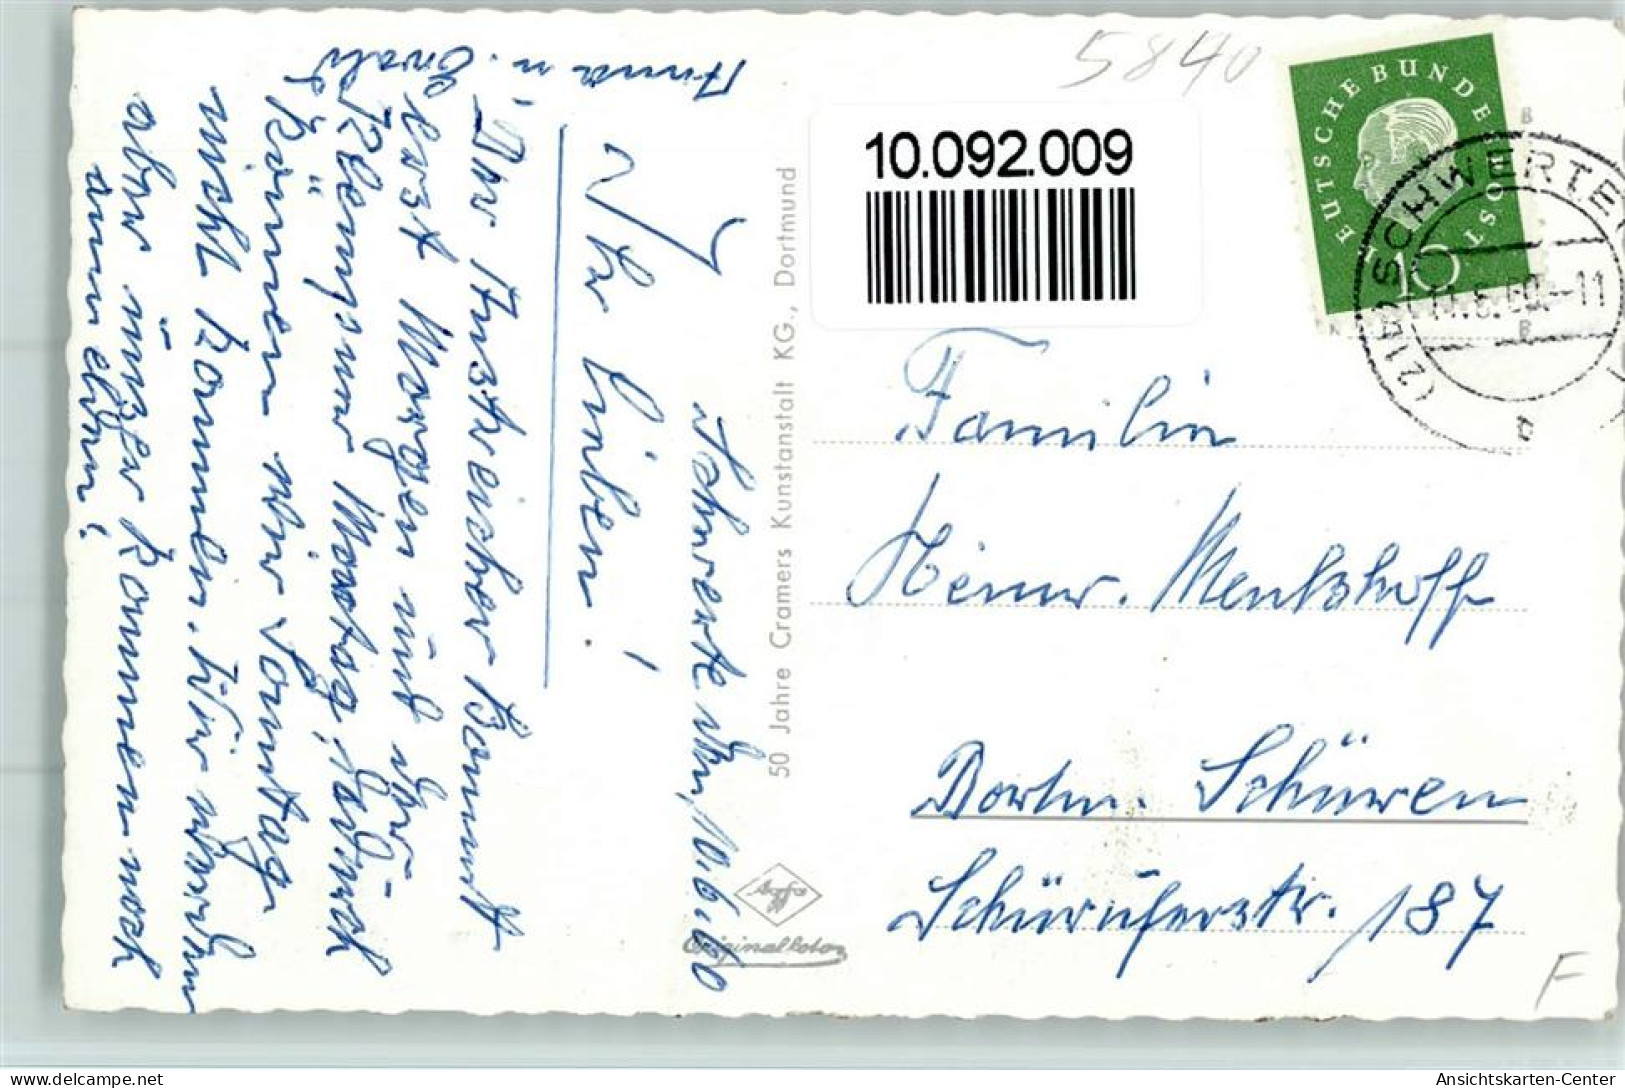 Schwerte den, 10.6.60
Ihr Lieben!
Der Anstreicher kommt
erst Morgen und der
Klempner Montag, dadurch
können wir Sonntag
nicht kommen. Wir werden
aber immer kommen noch
Anna u. Ewald
50 Jahre Cramers Kunstanstalt KG., Dortmund
Agfa
Originalfoto
5840
10.092.009
DEUTSCHE BUNDESPOST
10
(21b) SCHWERTE
11.6.60.-11
a
Familie
Heinr. Menkhoff
Dortm. Schüren
Schüruferstr. 187
F
Ansichtskarten-Center